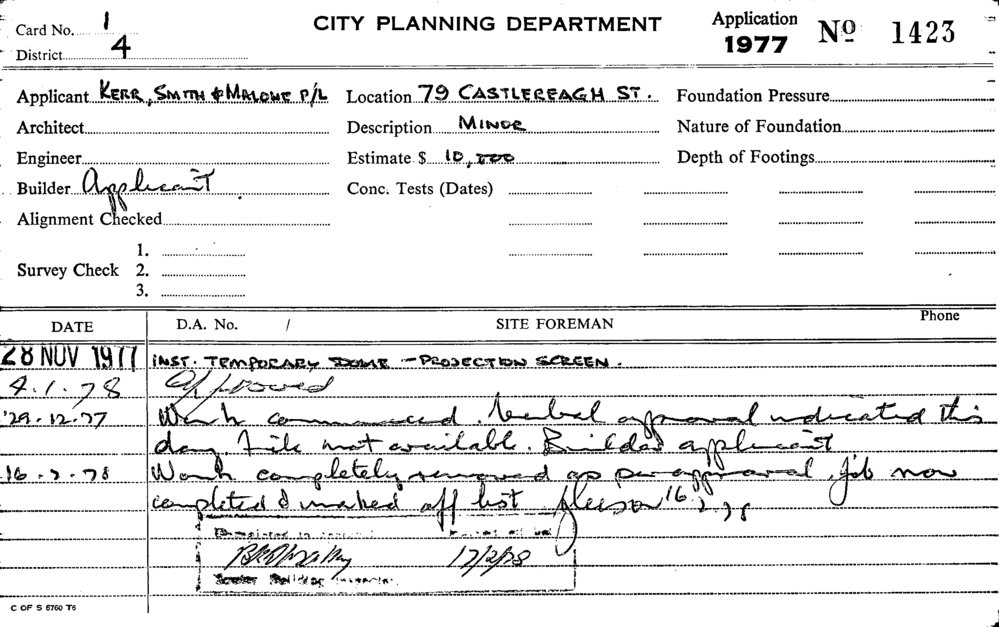 Card No. 1
District 4
CITY PLANNING DEPARTMENT
Application 1977 No 1423
Applicant KERR, SMITH & MALONE P/L
Location 79 CASTLEREAGH ST.
Foundation Pressure
Architect
Description MINOR
Nature of Foundation
Engineer
Estimate $ 10,000
Depth of Footings
Builder Applicant
Conc. Tests (Dates)
Alignment Checked
Survey Check 1.
2.
3.
DATE D.A. No. / SITE FOREMAN Phone
28 NOV 1977 INST. TEMPORARY DOME - PROJECTION SCREEN.
4.1.78 Approved
29.12.77 Work commenced. Verbal approval indicated this
day. File not available. Builder applicant
16.2.78 Work completely removed as per approval, job now
completed & marked off list 16.2.78
17/2/78
Senior Building Inspector.
C OF S 5760 T6